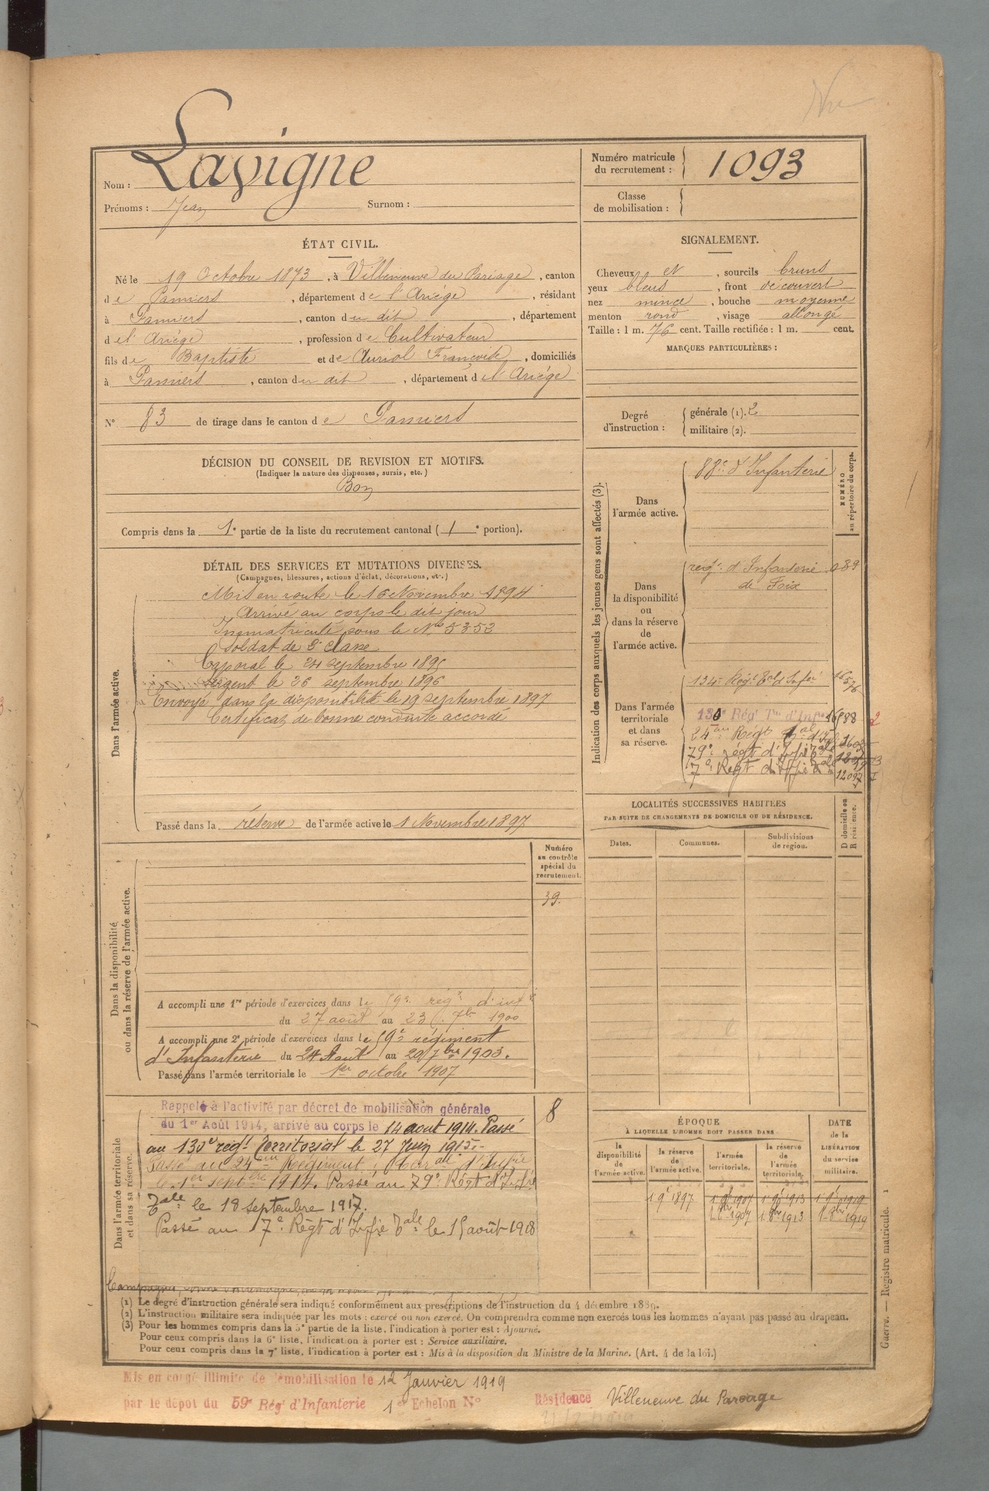 Lavigne
Nom :
Prénoms : Jean Surnom :
Numéro matricule du recrutement : 1093
Classe de mobilisation :
ÉTAT CIVIL.
Né le 19 Octobre 1873, à Villeneuve du Pariage, canton
de Pamiers, département de l'Ariège, résidant
à Pamiers, canton du dit, département
d el' Ariège, profession de Cultivateur
fils de Baptiste et de Auriol Françoise, domiciliés
à Pamiers, canton du dit, département d el'Ariège
N° 83 de tirage dans le canton de Pamiers
SIGNALEMENT.
Cheveux et, sourcils bruns
yeux bleus, front découvert
nez mince, bouche moyenne
menton rond, visage allongé
Taille : 1 m. 76 cent. Taille rectifiée : 1 m. cent.
MARQUES PARTICULIÈRES :
Degré d'instruction : générale (1). 2
militaire (2).
DÉCISION DU CONSEIL DE REVISION ET MOTIFS.
(Indiquer la nature des dispenses, sursis, etc.)
Bon
Compris dans la 1e partie de la liste du recrutement cantonal ( 1 e portion).
DÉTAIL DES SERVICES ET MUTATIONS DIVERSES.
(Campagnes, blessures, actions d'éclat, décorations, etc.)
Dans l'armée active.
Mis en route le 16 Novembre 1894
Arrivé au corps le dit jour
Immatriculé sous le N° 5353
Soldat de 2e classe
Caporal le 24 septembre 1895
Sergent le 26 septembre 1896
Envoyé dans la disponibilité le 19 septembre 1897
Certificat de bonne conduite accordé
Passé dans la réserve de l'armée active le 1 Novembre 1897
Indication des corps auxquels les jeunes gens sont affectés (3).
NUMÉRO au répertoire du corps.
Dans l'armée active.
88e d'Infanterie
Dans la disponibilité ou dans la réserve de l'armée active.
regt d'Infanterie
de Foix
Dans l'armée territoriale et dans sa réserve.
134e Regt Tal d'Infie
130 Rég Ter d'Inf
24e Regt
79e régt d'Infie
7e Regt d'Infie
LOCALITÉS SUCCESSIVES HABITÉES
PAR SUITE DE CHANGEMENTS DE DOMICILE OU DE RÉSIDENCE.
D domicile ou R résidence.
Dates. Communes. Subdivisions de région.
Dans la disponibilité ou dans la réserve de l'armée active.
Numéro au contrôle spécial du recrutement.
39.
A accompli une 1re période d'exercices dans le
du 27 août au 23 7bre 1900
A accompli une 2e période d'exercices dans le régiment
d'Infanterie du 24 Août au 20 7bre 1903.
Passé dans l'armée territoriale le 1er octobre 1907
Dans l'armée territoriale et dans sa réserve.
8
Rappelé à l'activité par décret de mobilisation générale
du 1er Août 1914, arrivé au corps le 14 aout 1914. Passé
au 130e régt Territorial le 27 Juin 1915.
Passé au 24me Régiment
le 1er septbre 1917. Passé au 79e Régt d'Infie
Tale le 18 septembre 1917.
Passé au 7e Régt d'Infie Tale le 15 août 1918
ÉPOQUE
À LAQUELLE L'HOMME DOIT PASSER DANS :
la disponibilité de l'armée active. la réserve de l'armée active. l'armée territoriale. la réserve de l'armée territoriale.
DATE de la LIBÉRATION du service militaire.
(1) Le degré d'instruction générale sera indiqué conformément aux prescriptions de l'instruction du 4 décembre 1889.
(2) L'instruction militaire sera indiquée par les mots : exercé ou non exercé. On comprendra comme non exercés tous les hommes n'ayant pas passé au drapeau.
(3) Pour les hommes compris dans la 5e partie de la liste, l'indication à porter est : Ajourné.
Pour ceux compris dans la 6e liste, l'indication à porter est : Service auxiliaire.
Pour ceux compris dans la 7e liste, l'indication à porter est : Mis à la disposition du Ministre de la Marine. (Art. 4 de la loi.)
Guerre. — Registre matricule. 1
Mis en congé illimité de démobilisation le 12 Janvier 1919
par le dépot du 59e Rég d'Infanterie 1er Echelon N° Résidence Villeneuve du Pareage